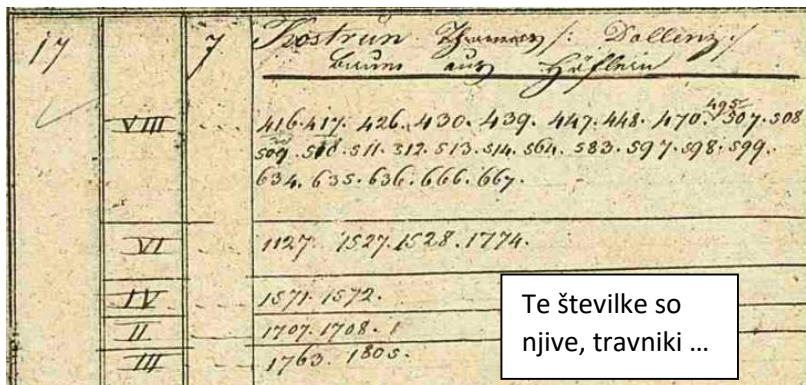 17 7 Kostrun Thomas /: Dallenz :/
aus Höflern
495
VIII 416. 417. 426. 430. 439. 447. 448. 470. 507. 508
509. 510. 511. 512. 513. 514. 564. 583. 597. 598. 599.
634. 635. 636. 666. 667.
VI 1127. 1527. 1528. 1774.
IV 1571. 1572.
II 1707. 1708.
III 1763. 1805.
Te številke so
njive, travniki ...